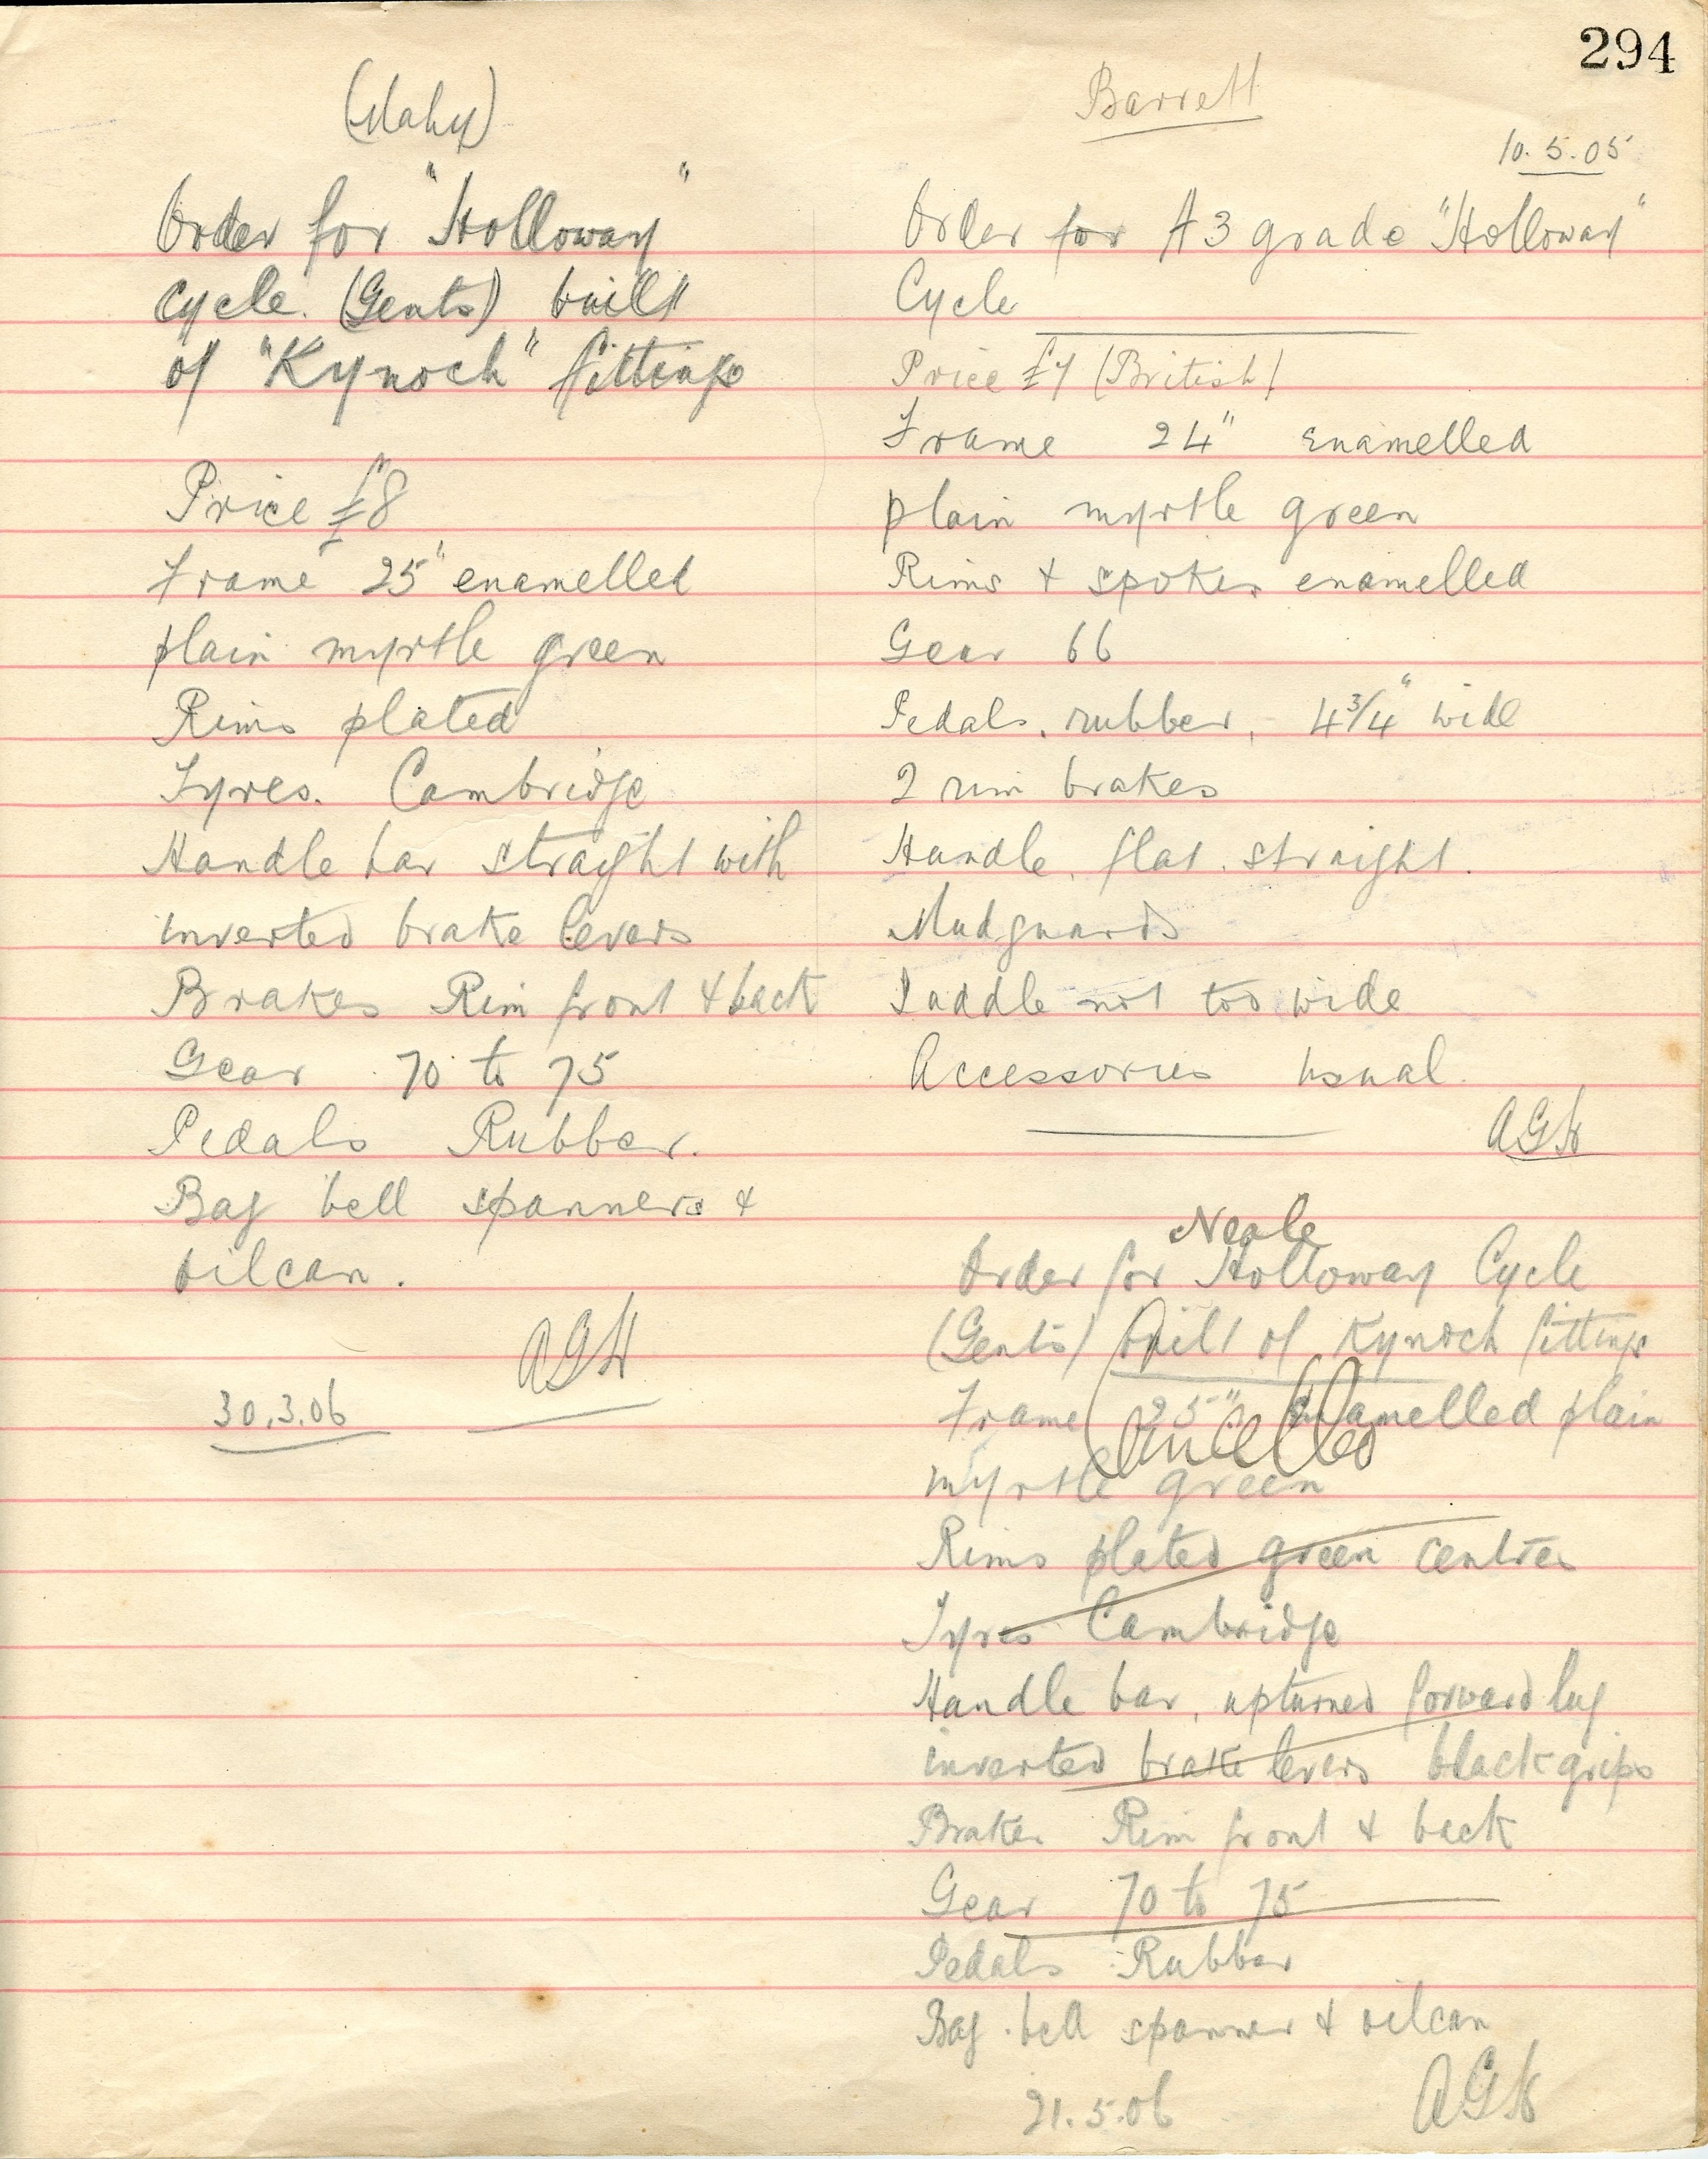 294
(Mahy)
Order for "Holloway"
Cycle. (Gents) built
of "Kynoch" fittings
Price £8
Frame 25" enamelled
plain myrtle green
Rims plated
Tyres. Cambridge
Handle bar straight with
inverted brake levers
Brakes Rim front & back
Gear 70 to 75
Pedals Rubber.
Bag bell spanners &
oilcan.
AGH
30.3.06
Barrett
10.5.05
Order for A3 grade "Holloway"
Cycle
Price £7 (British)
Frame 24" enamelled
plain myrtle green
Rims & spokes enamelled
Gear 66
Pedals, rubber, 4 3/4" wide
2 rim brakes
Handle, flat. straight.
Mudguards
Saddle not too wide
Accessories usual.
AGH
Neale
Order for Holloway Cycle
(Gents) built of Kynoch fittings
Frame 25" enamelled plain
Cancelled
myrtle green
Rims plated green centres
Tyres Cambridge
Handle bar, upturned forward lug
inverted brake levers black grips
Brakes Rim front & back
Gear 70 to 75
Pedals Rubber
Bag bell spanner & oilcan
21.5.06 AGH